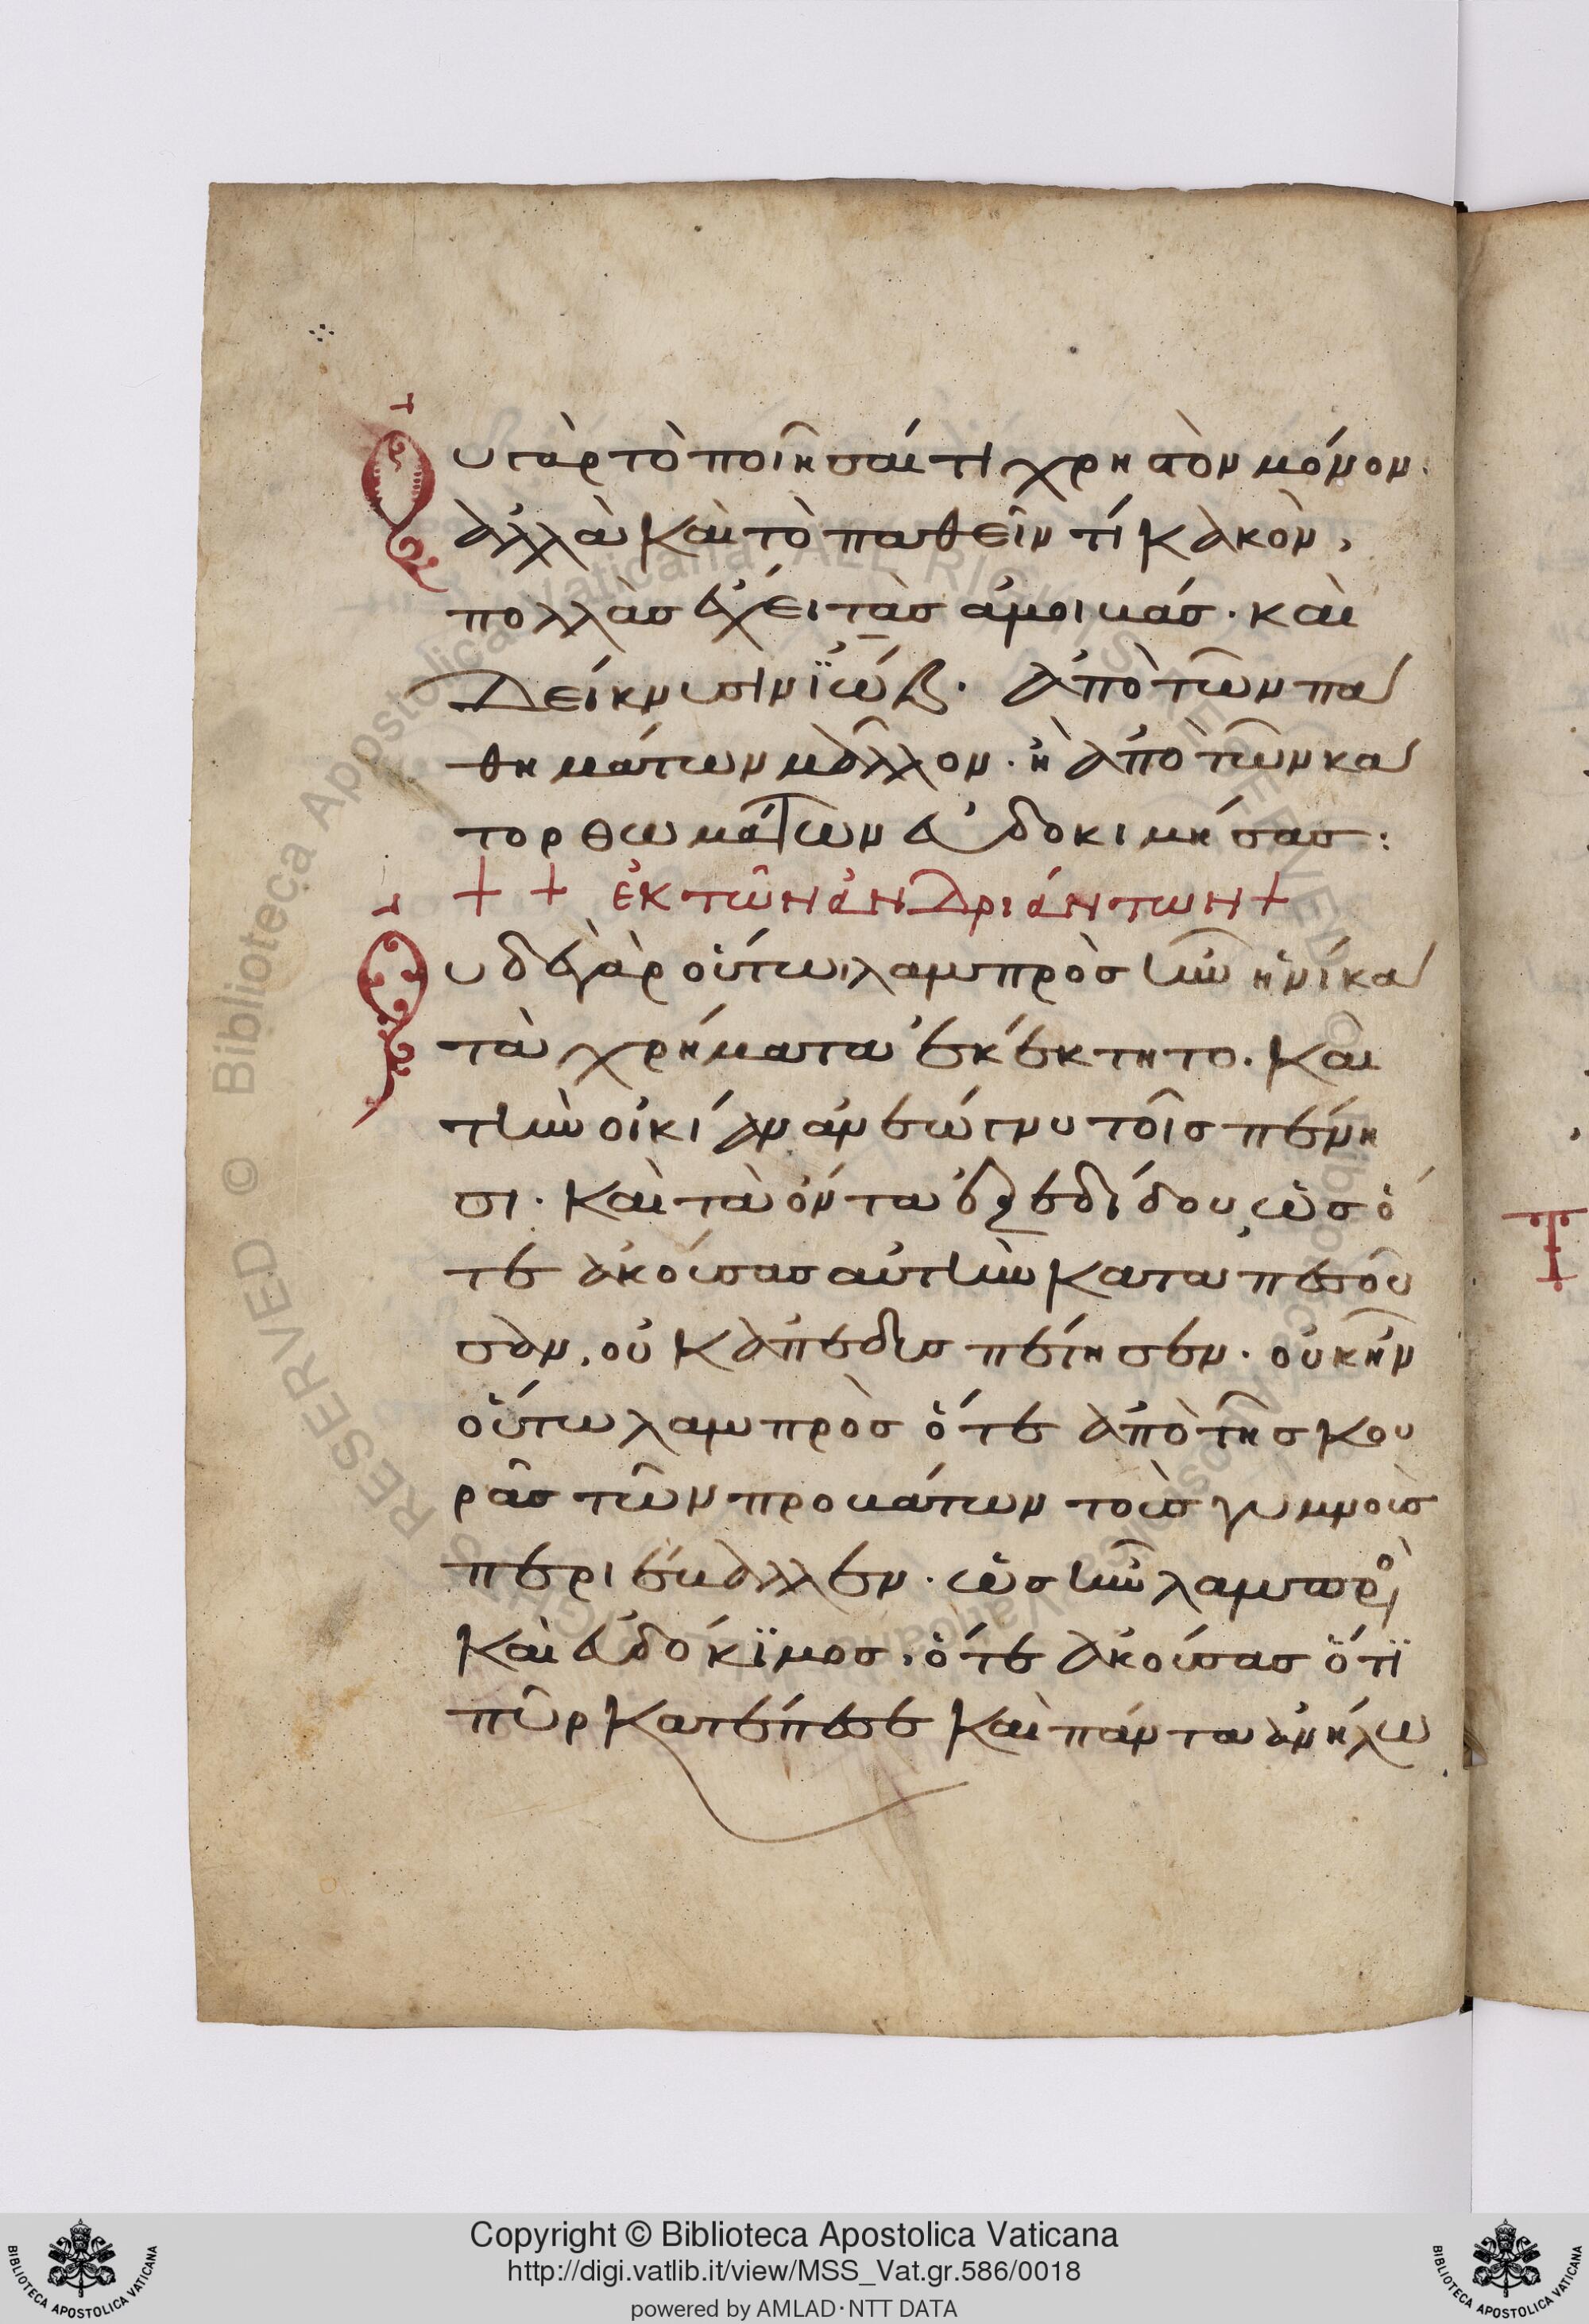 Ουγὰρ τὸ ποιῆσαί τι χρηστὸν μόνον·
ἀλλὰ καὶ τὸ παθεῖν τί κακὸν,
πολλὰς ἔχει τὰς ἀμοιβάς· καὶ
δείκνυσιν ϊώβ· ἀπὸ τῶν πα
θημάτων μᾶλλον· ἢ ἀπὸ τῶν κα
τορθωμάτων εὐδοκιμήσας:
+ + ἐκ τῶν ἀνδριάντων +
Ουδὲ γὰρ οὕτω λαμπρὸς ἦν ἡνίκα
τὰ χρήματα ἐκέκτητο. καὶ
τὴν οἰκίαν ἀνεώγνυ τοῖς πένη
σι· καὶ τὰ ὄντα ἐξεδίδου, ὡς ὅ
τε ἀκούσας αὐτὴν καταπεσοῦ
σαν, οὐκ ἀπεδυσπέτησεν· οὐκ ἦν
οὕτω λαμπρὸς ὅτε ἀπὸ τῆς κου
ρᾶς τῶν προβάτων τοὺς γυμνοὺς
περιέβαλλεν· ὡς ἦν λαμπρὸς
καὶ εὐδόκϊμος, ὅτε ἀκούσας ὅτϊ
πῦρ κατέπεσε καὶ πάντα ἀνήλω
Copyright © Biblioteca Apostolica Vaticana
http://digi.vatlib.it/view/MSS_Vat.gr.586/0018
powered by AMLAD·NTT DATA